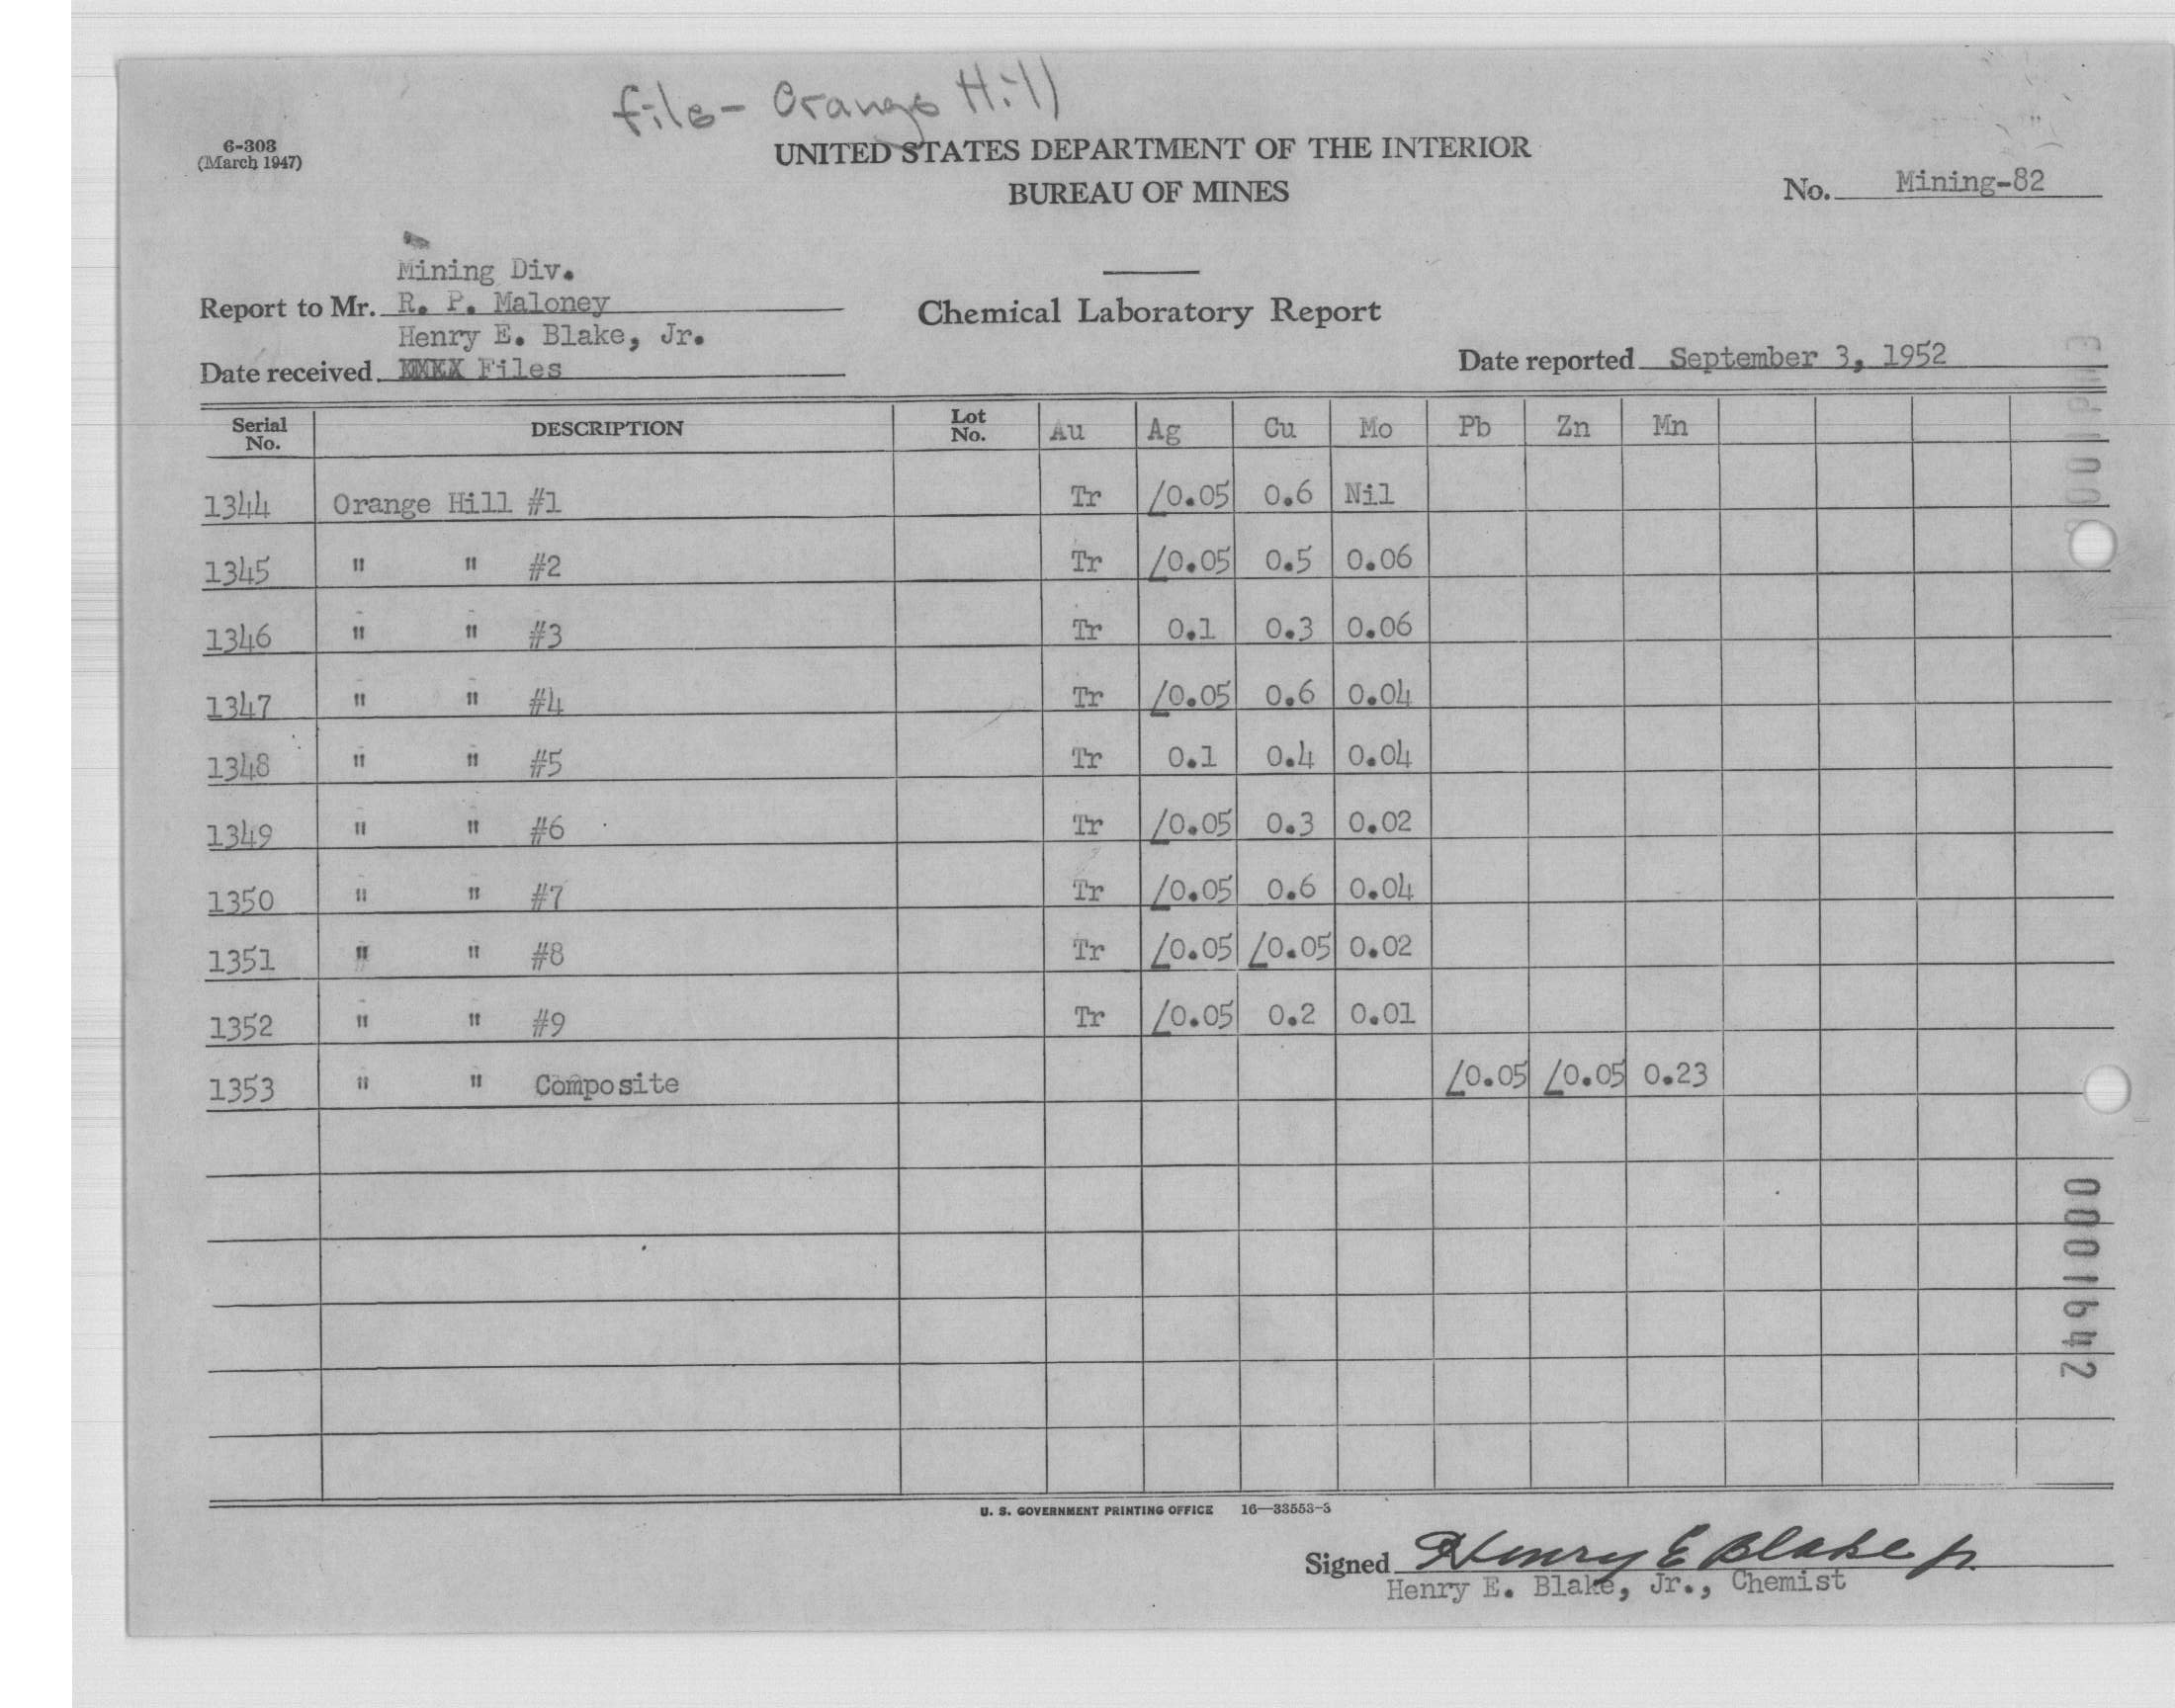 file - Orange Hill
6-303
(March 1947)
UNITED STATES DEPARTMENT OF THE INTERIOR
BUREAU OF MINES
No. Mining-82
Mining Div.
Report to Mr. R. P. Maloney
Henry E. Blake, Jr.
Chemical Laboratory Report
Date received XXXX Files
Date reported September 3, 1952
Serial No. DESCRIPTION Lot No. Au Ag Cu Mo Pb Zn Mn
1344 Orange Hill #1 Tr ∠0.05 0.6 Nil
1345 " " #2 Tr ∠0.05 0.5 0.06
1346 " " #3 Tr 0.1 0.3 0.06
1347 " " #4 Tr ∠0.05 0.6 0.04
1348 " " #5 Tr 0.1 0.4 0.04
1349 " " #6 Tr ∠0.05 0.3 0.02
1350 " " #7 Tr ∠0.05 0.6 0.04
1351 " " #8 Tr ∠0.05 ∠0.05 0.02
1352 " " #9 Tr ∠0.05 0.2 0.01
1353 " " Composite ∠0.05 ∠0.05 0.23
0001642
U. S. GOVERNMENT PRINTING OFFICE 16—33553-3
Signed Henry E Blake Jr.
Henry E. Blake, Jr., Chemist